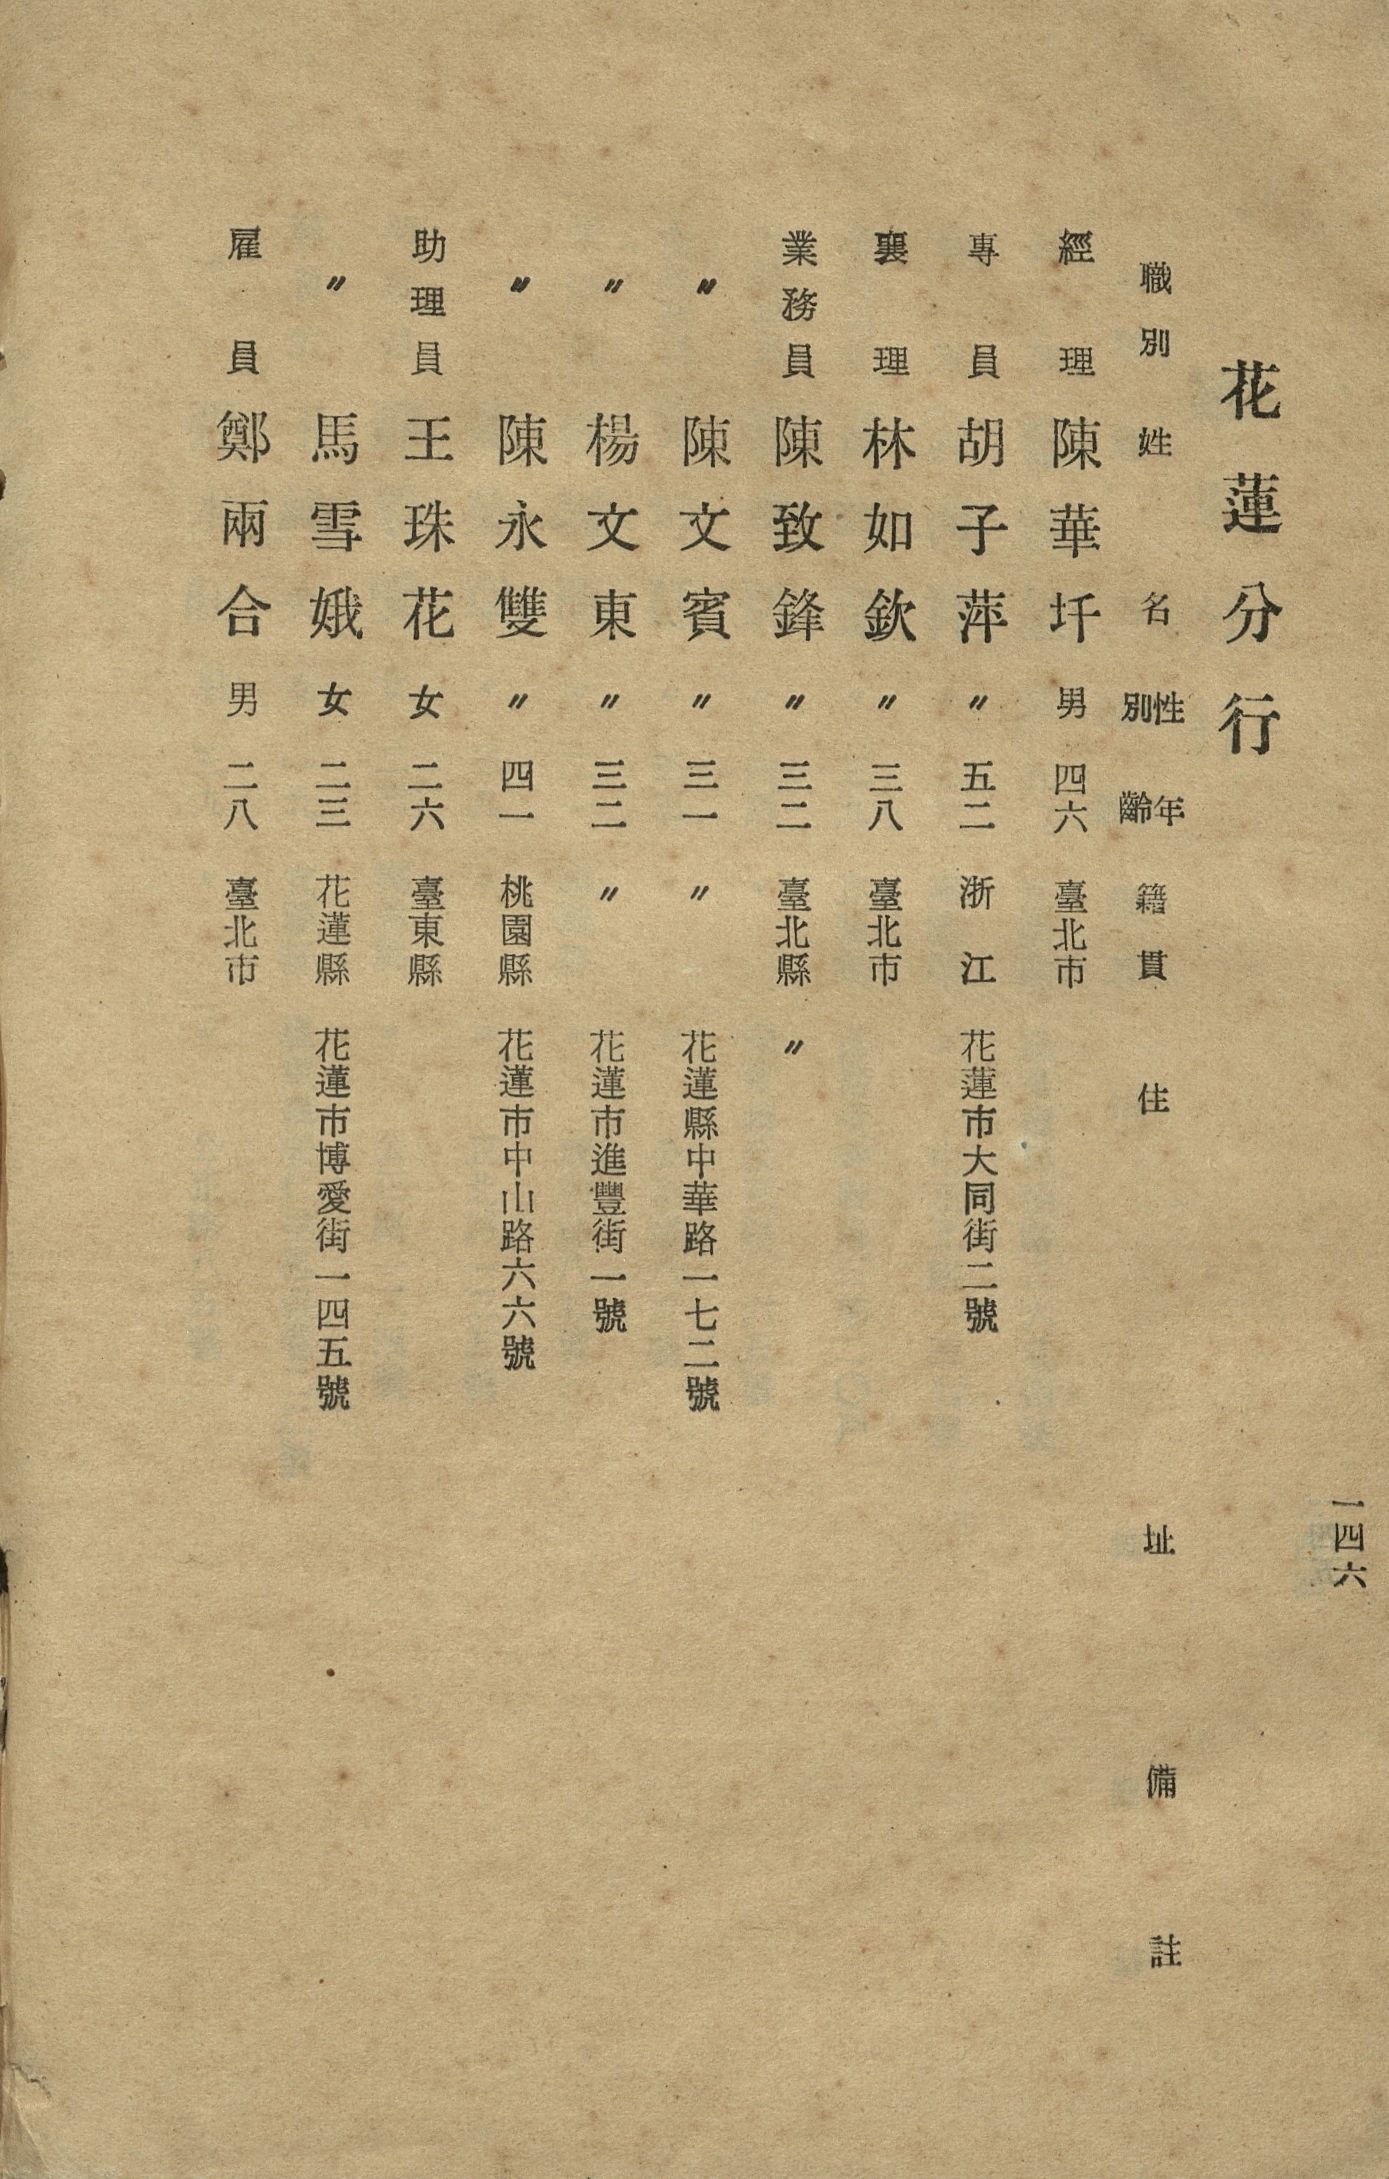 一四六
花蓮分行
職別 姓名 性別 年齡 籍貫 住址 備註
經理 陳華圲 男 四六 臺北市
專員 胡子萍 〃 五二 浙江 花蓮市大同街二號
襄理 林如欽 〃 三八 臺北市
業務員 陳致鋒 〃 三二 臺北縣 〃
〃 陳文賓 〃 三一 〃 花蓮縣中華路一七二號
〃 楊文東 〃 三二 〃 花蓮市進豐街一號
〃 陳永雙 〃 四一 桃園縣 花蓮市中山路六六號
助理員 王珠花 女 二六 臺東縣
〃 馬雪娥 女 二三 花蓮縣 花蓮市博愛街一四五號
雇員 鄭兩合 男 二八 臺北市